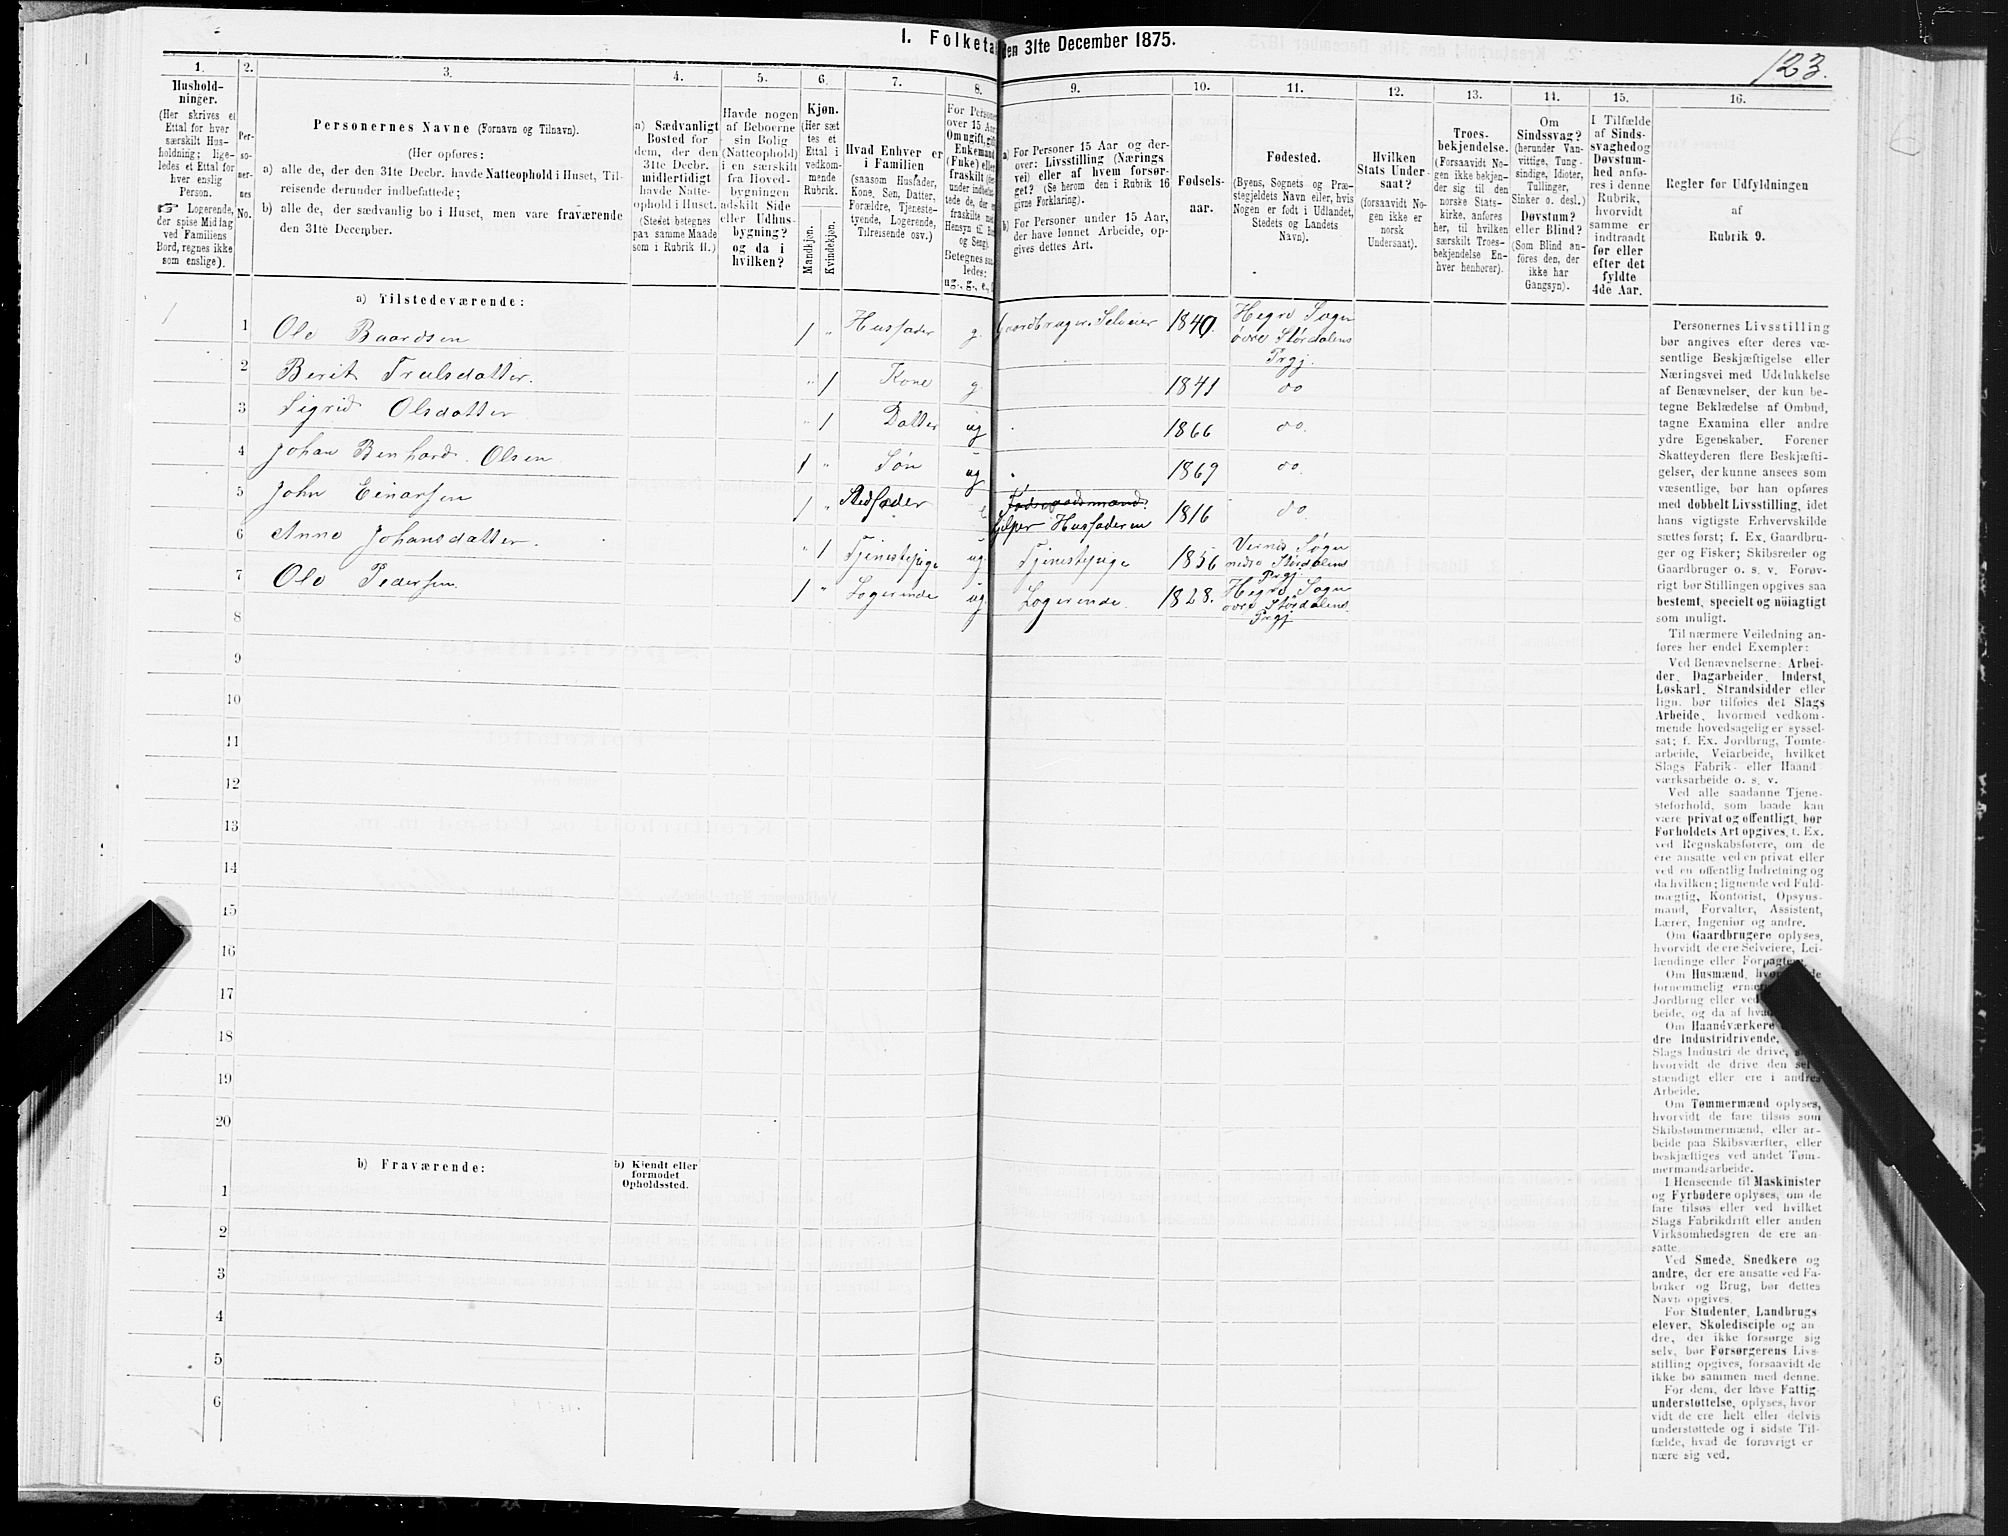 1. Folketa
den 31te December 1875.
123.
1.
2.
3.
4.
5.
6.
7.
8.
9.
10.
11.
12.
13.
14.
15.
16.
Hushold-
ninger.
(Her skrives et
Ettal for hver
særskilt Hus-
holdning; lige-
ledes et Ettal for
hver enslig
Person.
☞ Logerende,
der spise Middag
ved Familiens
Bord, regnes ikke
som enslige).
Per-
so-
ner-
nes
No.
Personernes Navne (Fornavn og Tilnavn).
(Her opføres:
a) alle de, der den 31te Decbr. havde Natteophold i Huset, Til-
reisende derunder indbefattede;
b) alle de, der sædvanlig bo i Huset, men vare fraværende
den 31te December.
a) Sædvanligt
Bosted for
dem, der den
31te Decbr.
midlertidigt
havde Natte-
ophold i Huset.
(Stedet betegnes
paa samme Maade
som i Rubrik 11.)
Havde nogen
af Beboerne
sin Bolig
(Natteophold)
i en særskilt
fra Hoved-
bygningen
adskilt Side-
eller Udhus-
bygning?
og da i
hvilken?
Kjøn.
(Her sæt-
tes et
Ettal i
vedkom-
mende
Rubrik.
Mandkjøn.
Kvindekjøn.
Hvad Enhver er
i Familien
(saasom Husfader,
Kone, Søn, Datter,
Forældre, Tjeneste-
tyende, Logerende,
Tilreisende osv.)
For Persone
over 15 Aar
Om ugift, gift,
Enkemand
(Enke) eller
fraskilt (der-
under indbefat-
tede de, der e
fraskilte med
Hensyn til Bo
og Seng).
Betegnes saa-
ledes:
ug., g., e., f.
a) For Personer 15 Aar og der-
over: Livsstilling (Nærings-
vei) eller af hvem forsør-
get? (Se herom den i Rubrik 16
givne Forklaring).
b) For Personer under 15 Aar,
der have lønnet Arbeide, op-
gives dettes Art.
Fødsels-
aar.
Fødested.
(Byens, Sognets og Præ-
stegjeldets Navn eller, hvis
Nogen er født i Udlandet,
Stedets og Landets
Navn).
Hvilken
Stats Under-
saat?
(forsaavidt No-
gen ikke er
norsk
Undersaat).
Troes-
bekjendelse.
(Forsaavidt No-
gen ikke bekjen-
der sig til den
norske Stats-
kirke, anføres
her, til hvilken
særskilt Troes-
bekjendelse En-
hver henhører).
Om
Sindssvag?
(herunder Van-
vittige, Tung-
sindige, Idioter,
Tullinger,
Sinker o. desl.)
Døvstum?
eller Blind?
(Som Blind an-
føres den, der
ikke har
Gangsyn).
I Tilfælde
af Sinds-
svaghed og
Døvstum-
hed anfø-
res i denne
Rubrik,
hvorvidt
samme er
indtraadt
før eller
efter det
fyldte
4de Aar.
Regler før Udfyldningen
af
Rubrik 9.
a) Tilstedeværende:
1 1 Ole Baardsen 1 " Husfader g. Gaardbruger. Selveier 1840. Hegre Sogn
øvre Størdalens
Prgj.
2 Berit Trulsdatter. " 1 Kone g. 1841 do
3 Sigrid Olsdatter " 1 Datter ug 1866 do.
4 Johan Benhard. Olsen 1 " Søn ug " 1869 do.
5 John Einarsen 1 " Stedfader e 1816 do.
hjelper Husfaderen
6 Anne Johansdatter. " 1 Tjenestepige ug. Tjenestepige 1856 Vernes Sogn
nedre Størdalens
Prgj.
7 Ole Pedersen. 1 " Logerende ug. Logerende. 1828. Hegre Sogn
øvre Størdalens
Prgj
8
9
10
11
12
13
14
15
16
17
18
19
20
b) Fraværende:
b) Kjendt eller
formodet
Opholdssted.
1
2
3
4
5
6
Personernes Livsstilling
bør angives efter deres væ-
sentlige Beskjæftigelse eller
Næringsvei med Udelukkelse
af Benævnelser, der kun be-
tegne Beklædelse af Ombud,
tagne Examina eller andre
ydre Egenskaber. Forener
Skatteyderen flere Beskjæfti-
gelser, der kunne ansees som
væsentlige, bør han opføres
med dobbelt Livsstilling, idet
hans vigtigste Erhvervskilde
sættes først; f. Ex. Gaardbru-
ger og Fisker; Skibsreder og
Gaardbruger o. s. v. Forøv-
rigt bør Stillingen opgives saa
bestemt, specielt og nöiagtigt
som muligt.
Til nærmere Veiledning an-
føres her endel Exempler:
Ved Benævnelserne: Arbei-
der, Dagarbeider, Inderst,
Løskarl, Strandsidder eller
lign. bør tilføies det Slags
Arbeide, hvormed vedkom-
mende hovedsagelig er syssel-
sat; f. Ex. Jordbrug, Tomte-
arbeide, Veiarbeide, hvilket
Slags Fabrik- eller Haand-
værksarbeide o. s. v.
Ved alle saadanne Tjene-
steforhold, som baade kan
være privat og offentligt, bør
Forholdets Art opgives, f. Ex.
ved Regnskabsførere, om de
ere ansatte ved en privat eller
ved en offentlig Indretning og
da hvilken; lignende ved Fuld-
mægtig, Kontorist, Opsyns-
mand, Forvalter, Assistent,
Lærer, Ingeniør og andre.
Om Gaardbrugere oplyses,
hvorvidt de ere Selveiere, Lei-
lændinge eller Forpagtere.
Om Husmænd, hvor de
fornemmelig ernæ
Jordbrug eller ved
beide, og da af hva
Om Haandværkere
dre Industridrivende,
Slags Industri de drive,
hvorvidt de drive den sel
stændigt eller ere i andres
Arbeide.
Om Tømmermænd oplyses,
hvorvidt de fare tilsøs som
Skibstømmermænd, eller ar-
beide paa Skibsværfter, eller
beskjæftiges ved andet Tøm-
mermandsarbeide.
I Henseende til Maskinister
og Fyrbødere oplyses, om de
fare tilsøs eller ved hvilket
Slags Fabrikdrift eller anden
Virksomhedsgren de ere an-
satte.
Ved Smede, Snedkere og
andre, der ere ansatte ved Fa-
briker og Brug, bør dettes
Navn opgives.
For Studenter, Landbrugs-
elever, Skoledisciple og an-
dre, der ikke forsørge sig
selv, bør Forsørgerens Livs-
stilling opgives, forsaavidt de
ikke bo sammen med denne.
For dem, der have Fattig-
understøttelse, oplyses, hvor-
vidt de ere helt eller delvis
understøttede og i sidste Til-
fælde, hvad de forøvrigt er-
nære sig ved.